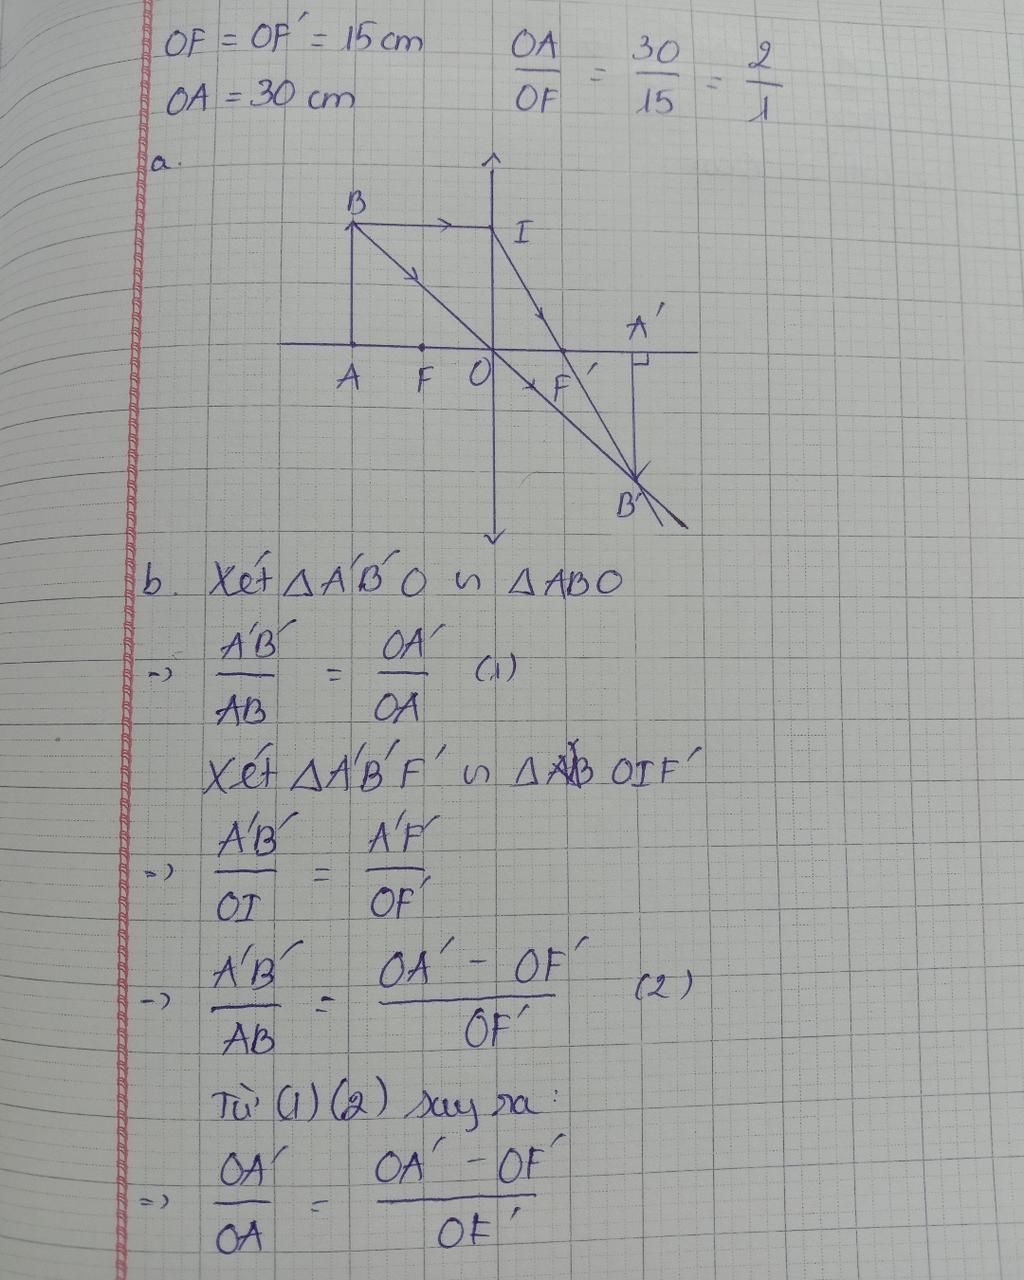 OF = OF' = 15 cm
OA = 30 cm
OA/OF = 30/15 = 2/1
a.
B
I
A'
A F O F'
B'
b. Xét Δ A'B'O ∽ Δ ABO
=> A'B'/AB = OA'/OA (1)
Xét Δ A'B'F' ∽ Δ OIF'
=> A'B'/OI = A'F'/OF'
=> A'B'/AB = (OA' - OF')/OF' (2)
Từ (1) (2) suy ra:
=> OA'/OA = (OA' - OF')/OF'